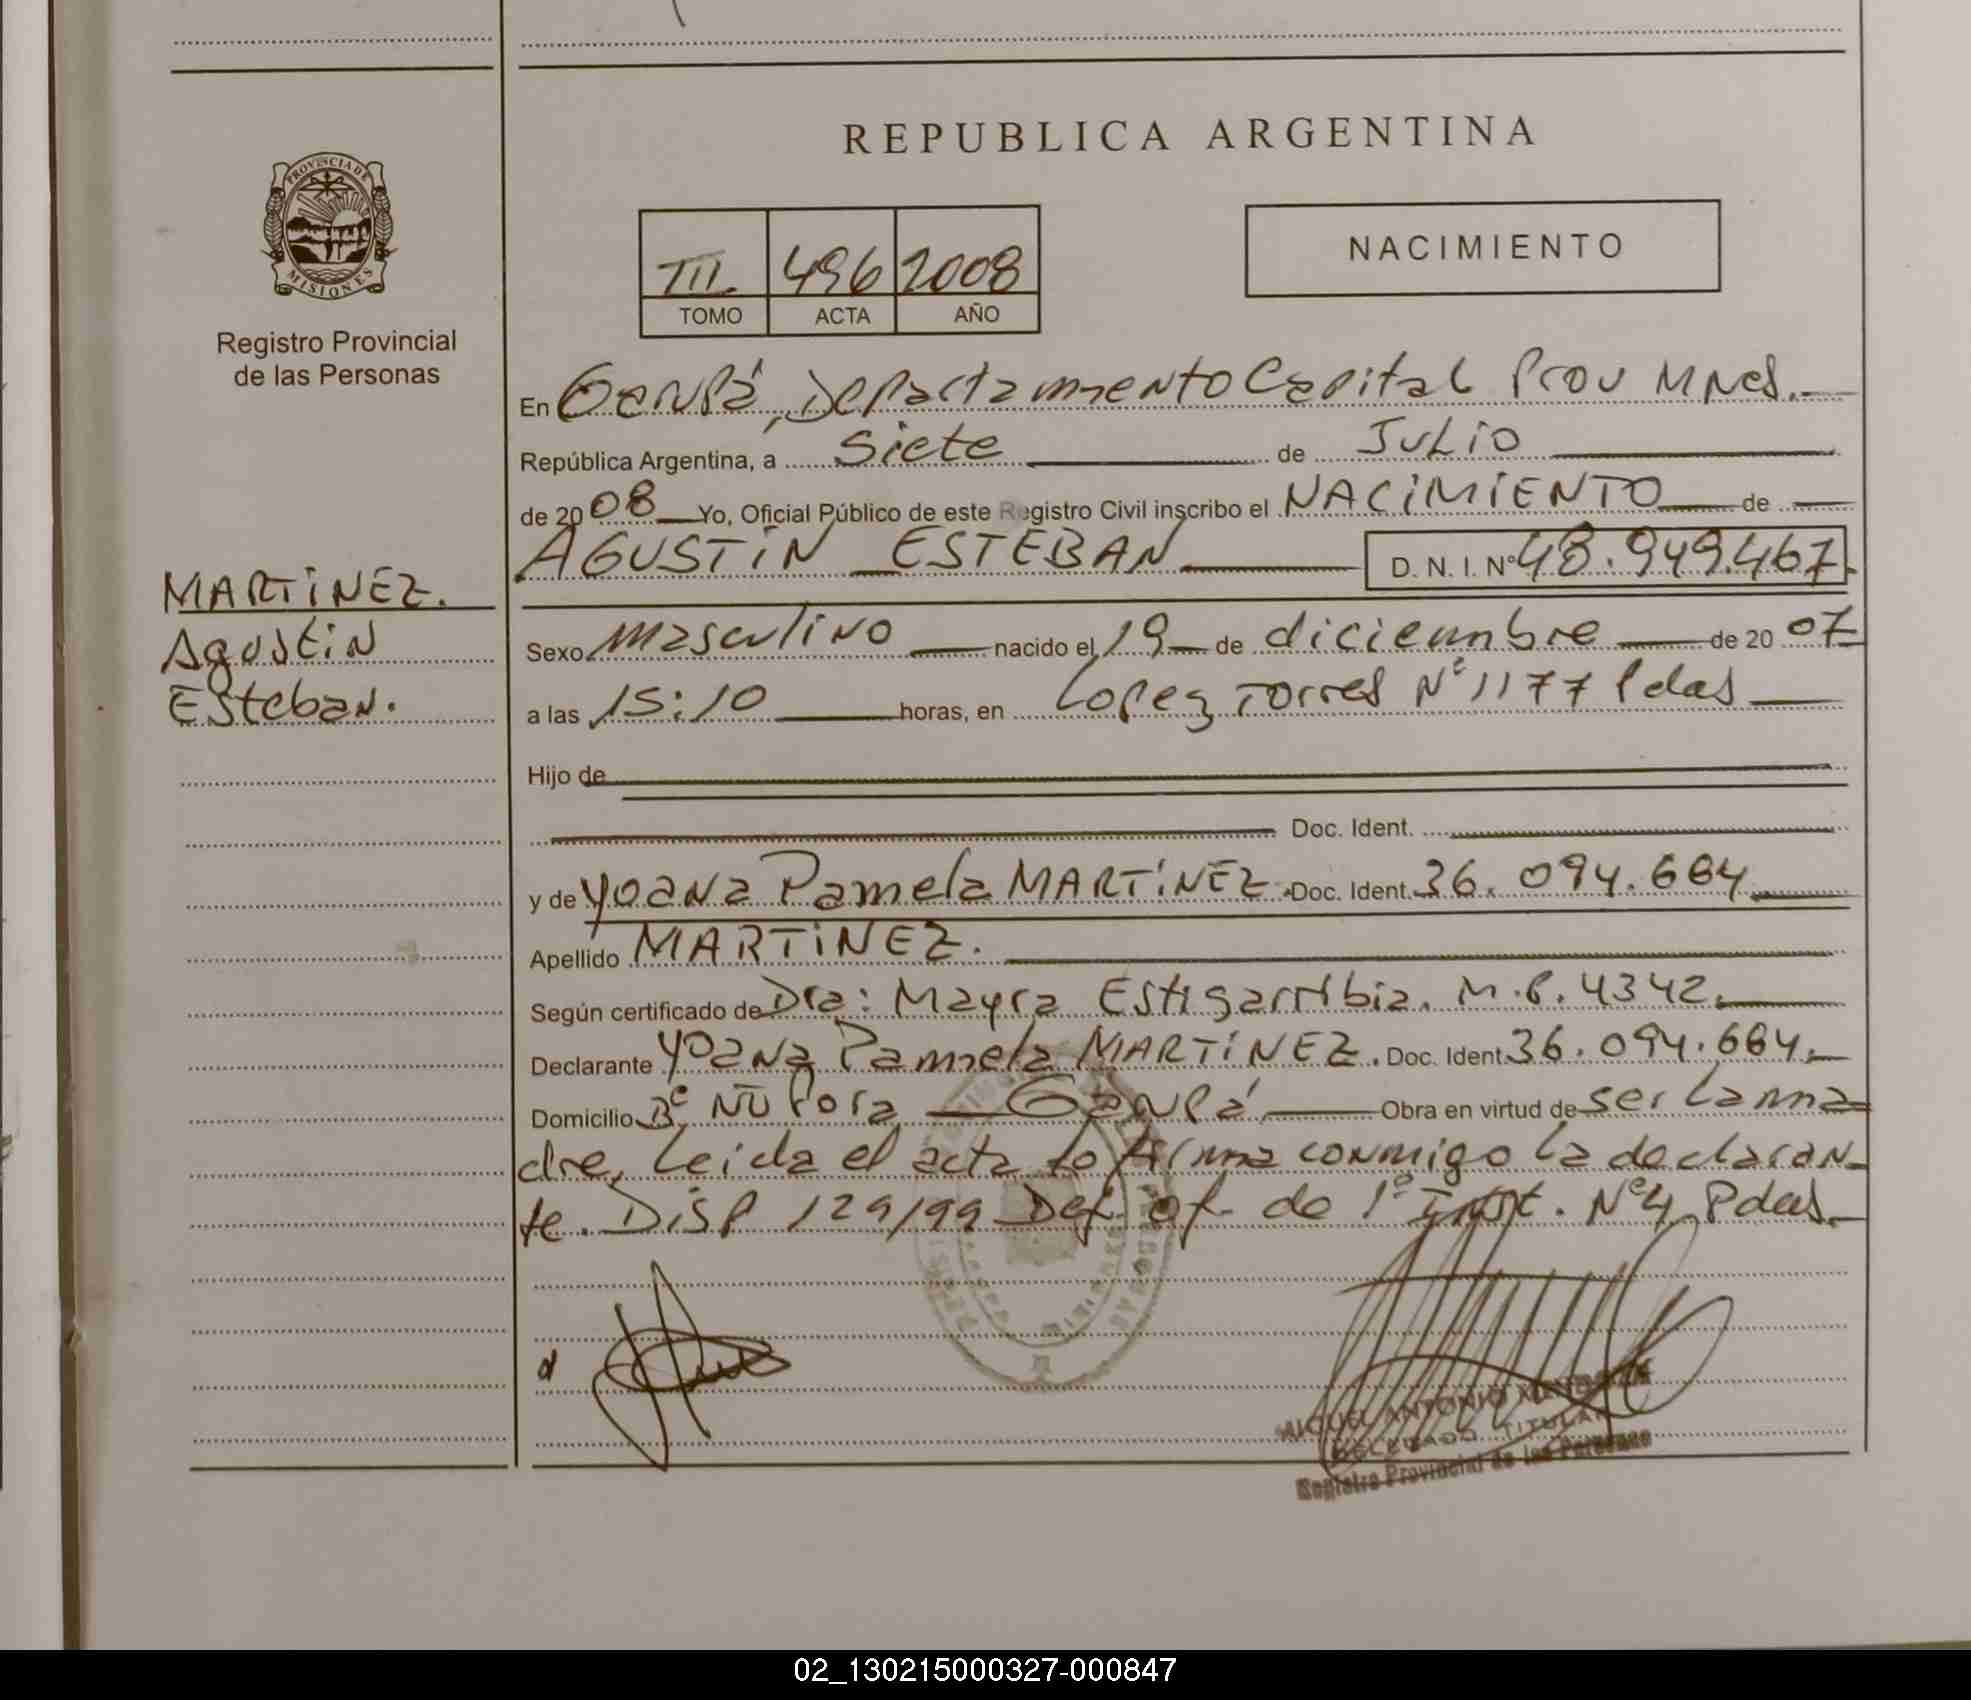 REPUBLICA ARGENTINA
PROVINCIA DE MISIONES
Registro Provincial
de las Personas
III 496 2008
TOMO ACTA AÑO
NACIMIENTO
En Garupá, Departamento Capital Prov Mnes.
República Argentina, a Siete de Julio
de 2008 Yo, Oficial Público de este Registro Civil inscribo el NACIMIENTO de
AGUSTIN ESTEBAN D. N. I. Nº 48.949.467
MARTINEZ.
Agustin
Esteban.
Sexo masculino nacido el 19 de diciembre de 2007
a las 15:10 horas, en Lopez Torres Nº 1177 Pdas
Hijo de
Doc. Ident.
y de Yoana Pamela MARTINEZ. Doc. Ident. 36.094.664
Apellido MARTINEZ.
Según certificado de Dra: Mayra Estigarribia. M.P. 4342.
Declarante Yoana Pamela MARTINEZ. Doc. Ident. 36.094.664.
Domicilio Bº Ñu Pora Garupá Obra en virtud de ser la ma
dre, Leida el acta lo firma conmigo la declaran
te. DISP 129/99 Def. of. de 1º Inst. Nº 4 Pdas
MIGUEL ANTONIO
DELEGADO TITULAR
Registro Provincial de las Personas
02_130215000327-000847